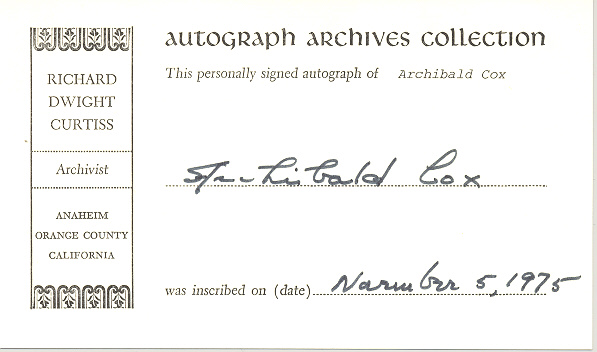 AUTOGRAPH ARCHIVES COLLECTION
This personally signed autograph of Archibald Cox
RICHARD
DWIGHT
CURTISS
Archivist
ANAHEIM
ORANGE COUNTY
CALIFORNIA
Archibald Cox
was inscribed on (date) November 5, 1975